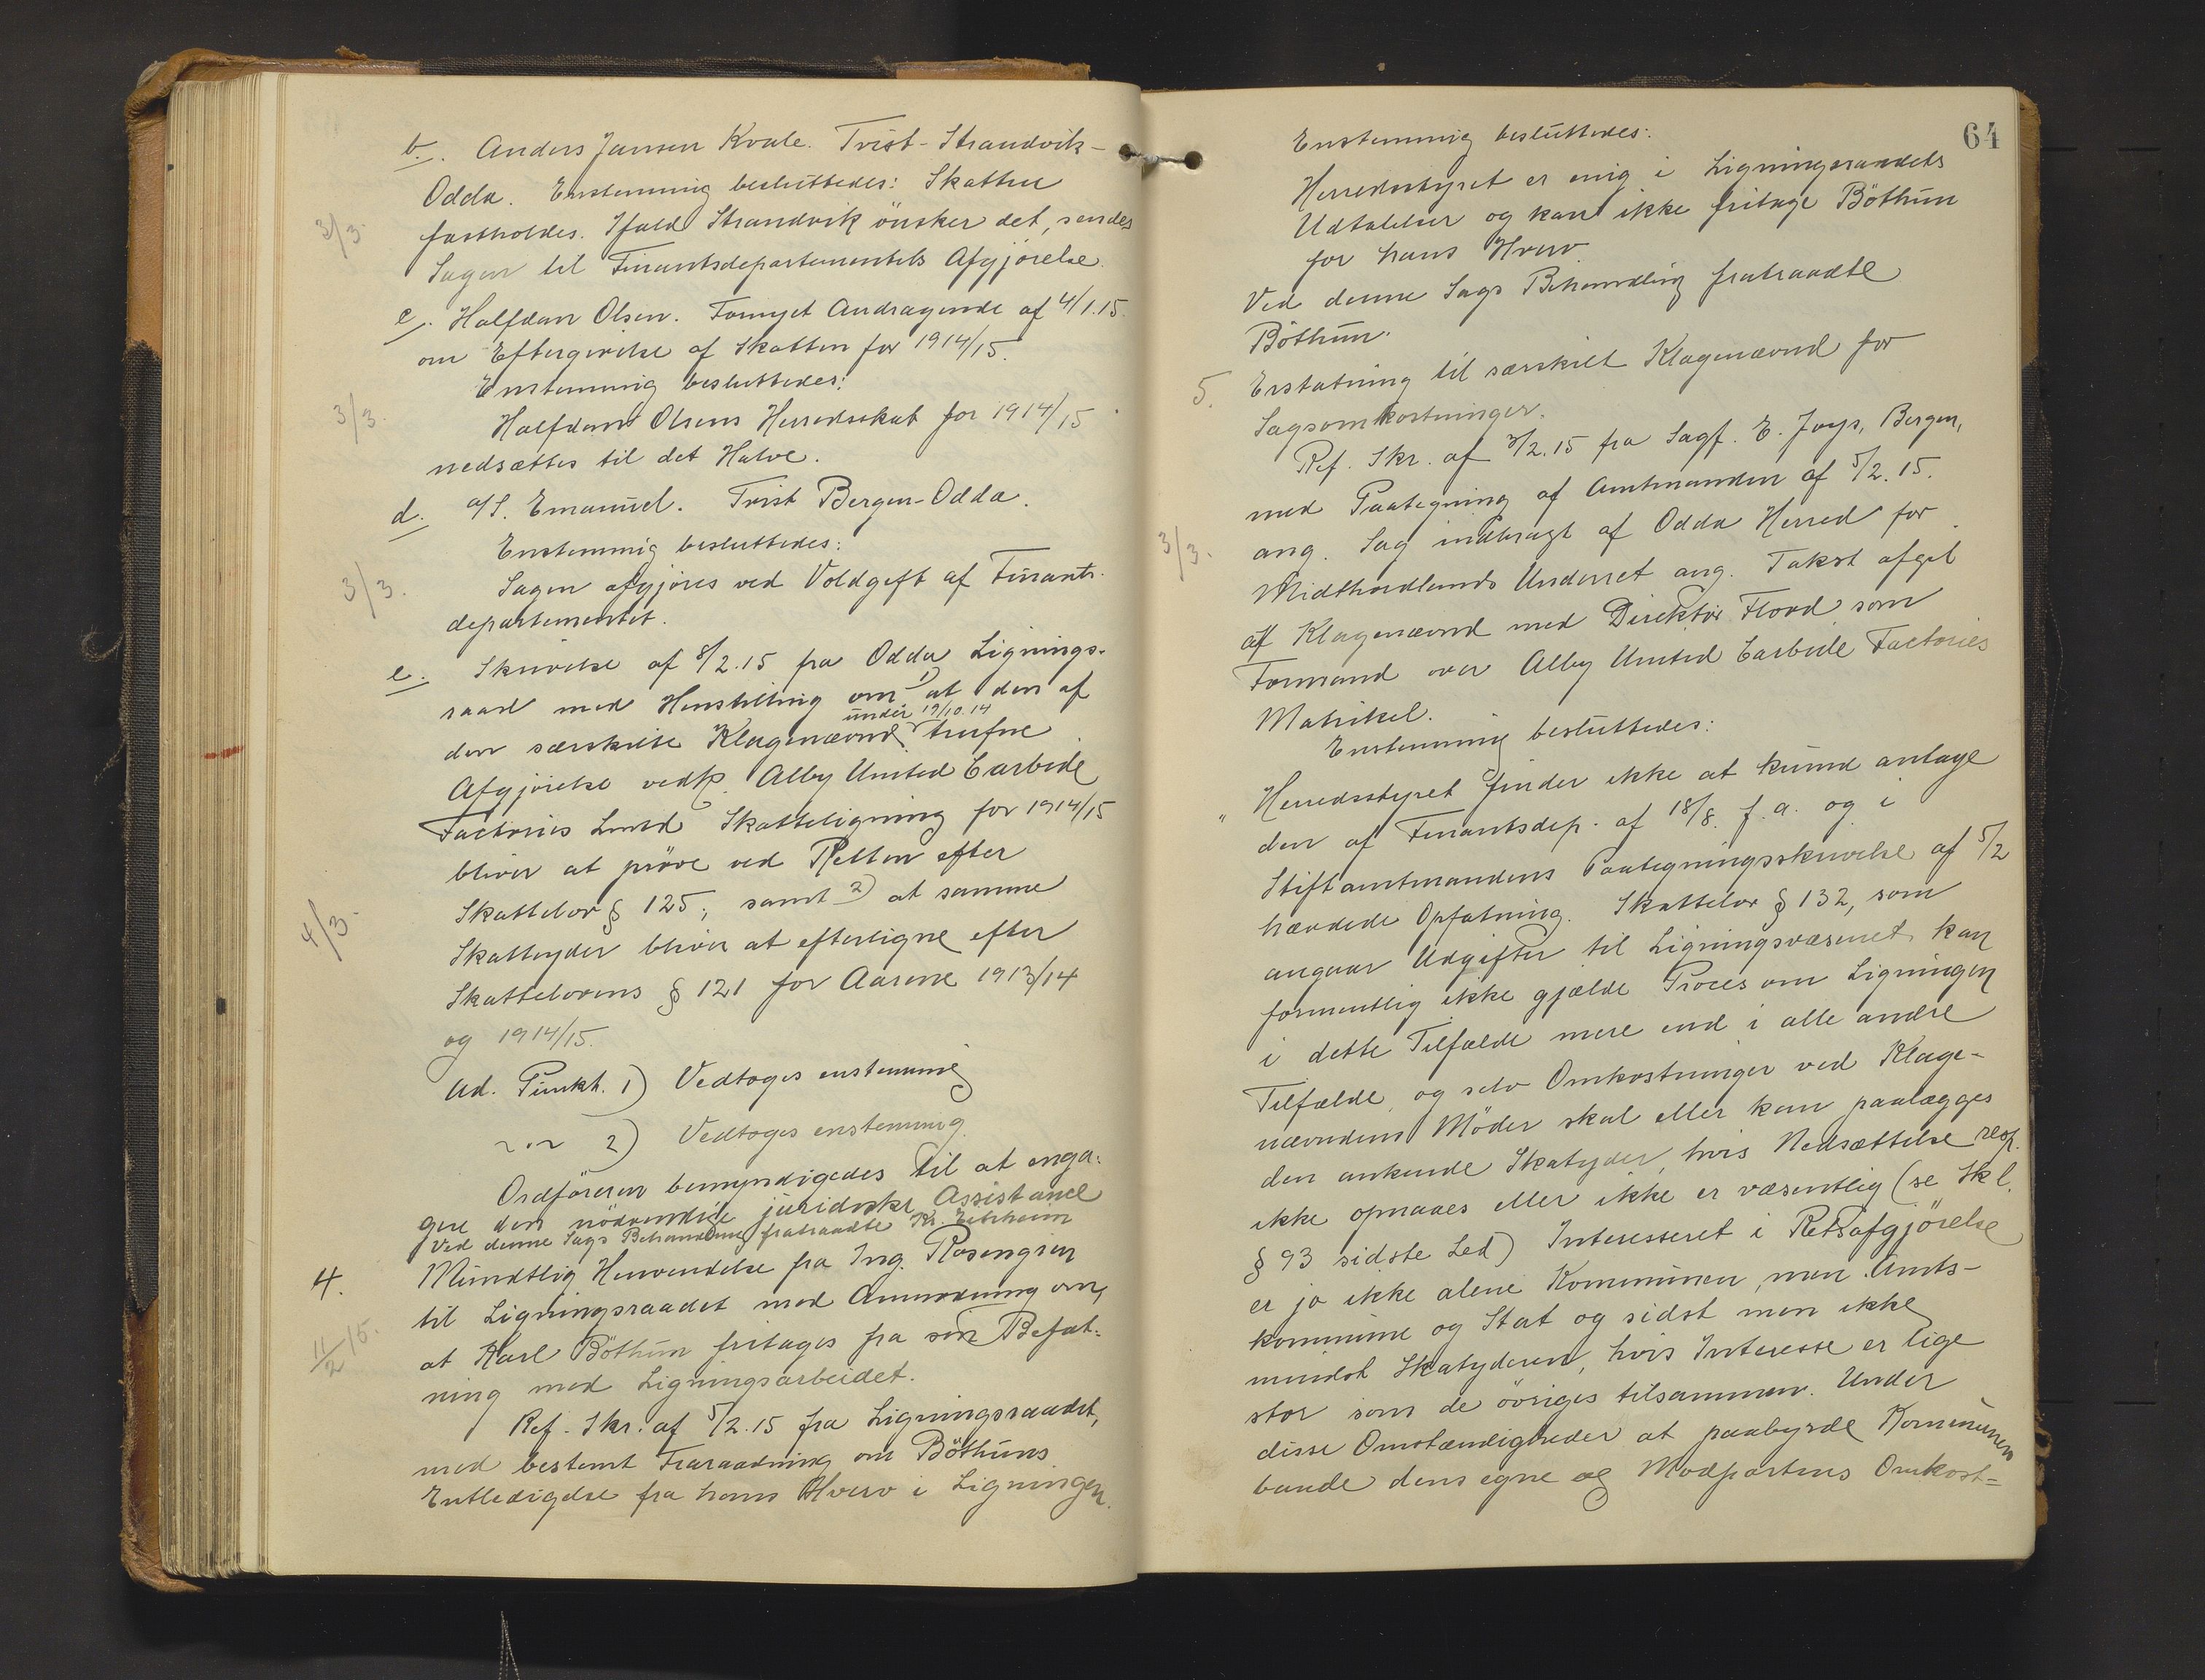 b. Anders Jansen Kvale. Tvist-Strandvik-
Odda. Enstemmig besluttedes: Skatten
3/3. fastholdes. Ifald Strandvik önsker det, sendes
Sagen til Finantsdepartementets Afgjörelse.
c. Halfdan Olsen. Fornyet Andragende af 4/1.15.
om Eftergivelse af Skatten for 1914/15.
Enstemmig besluttedes:
3/3. Halfdan Olsens Herredsskat for 1914/15
nedsættes til det Halve.
d. A/S. Emanuel. Tvist Bergen-Odda.
Enstemmig besluttedes:
3/3. Sagen afgjöres ved Voldgift af Finants-
departementet.
e. Skrivelse af 8/2.15 fra Odda Lignings-
raad med Henstilling om 1) at den af
den særskilte Klagenævnd under 19/10.14 trufne
Afgjörelse vedk. Alby United Carbide
Factories Limtd Skatteligning for 1914/15
bliver at pröve ved Retten efter
Skattelov § 125; samt 2) at samme
4/3. Skatteyder bliver at efterligne efter
Skattelovens § 121 for Aarene 1913/14
og 1914/15.
Ad. Punkt. 1) Vedtoges enstemmig
" " 2) Vedtoges enstemmig.
Ordföreren bemyndigedes til at enga-
gere den nödvendige juridiske Assistance
Ved denne Sags Behandling fratraadte Kr. Eitrheim
4. Mundtlig Henvendelse fra Ing. Rosengren
til Ligningsraadet med Anmodning om,
11/2 15. at Karl Böthun fritages fra sin Befat-
ning med Ligningsarbeidet.
Ref. Skr. af 5/2.15 fra Ligningsraadet,
med bestemt Fraraadning om Böthuns
Entledigelse fra hans Hverv i Ligningen.
64
Enstemmig besluttedes:
Herredsstyret er enig i Ligningsraadets
Udtalelser og kan ikke fritage Böthun
for hans Hverv.
Ved denne Sags Behandling fratraadte
Böthun.
5. Erstatning til særskilt Klagenævnd for
Sagsomkostninger.
Ref. Skr. af 3/2.15 fra Sagf. E. Joys, Bergen,
med Paategning af Amtmanden af 5/2.15.
3/3. ang. Sag indbragt af Odda Herred for
Midthordlands Underret ang. Takst afgit
af Klagenævnd med Direktör Flood som
Formand over Alby United Carbide Factories
Matrikel.
Enstemmig besluttedes:
" Herredsstyret finder ikke at kunne antage
den af Finantsdep. af 18/8. f.a. og i
Stiftamtmandens Paategningsskrivelse af 5/2
hævdede Opfatning. Skattelov § 132, som
angaar Udgifter til Ligningsvæsenet, kan
formentlig ikke gjælde Proces om Ligningen
i dette Tilfælde mere end i alle andre
Tilfælde, og selv Omkostninger ved Klage-
nævndens Möder skal eller kan paalægges
den ankende Skatyder, hvis Nedsættelse resp.
ikke opnaaes eller ikke er væsentlig (se Skl.
§ 93 sidste Led) Interesseret i Retsafgjörelse
er jo ikke alene Kommunen, men Amts-
kommune og Stat og sidst men ikke
mindst Skatyderen, hvis Interesse er lige
stor som de övriges tilsammen. Under
disse Omstændigheder at paabyrde Kommunen
baade dens egne og Modpartens Omkost=